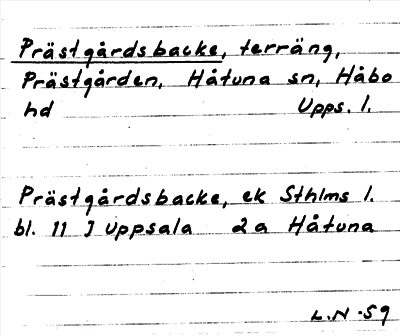 Prästgårdsbacke, terräng,
Prästgården, Håtuna sn, Håbo
hd Upps. l.
Prästgårdsbacke, ek Sthlms l.
bl. 11 J Uppsala 2a Håtuna
L.N -59